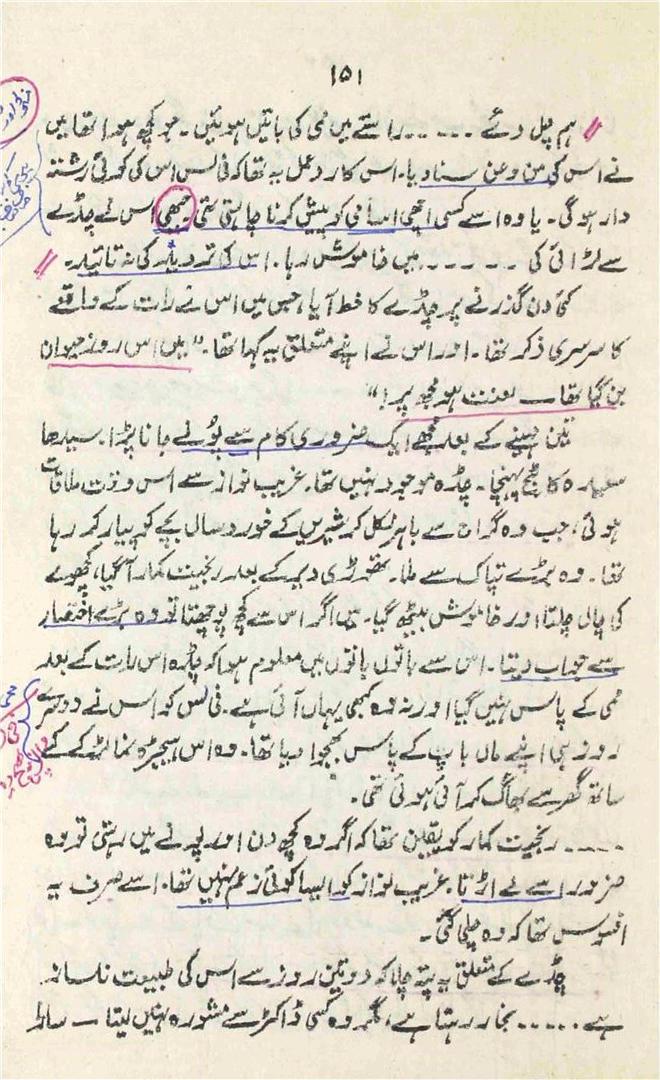 ۱۵۱
ہم چل دئے ۔۔۔۔۔ راستے میں ممی کی باتیں ہوئیں۔ جو کچھ ہوا تھا میں
نے اس کو من و عن سنا دیا۔ اس کا ردعمل یہ تھا کہ فی لس اس کی کوئی رشتہ
دار ہوگی۔ یا وہ اسے کسی اچھی اسامی کو پیش کرنا چاہتی تھی۔ جبھی اس نے چڈے
سے لڑائی کی ۔۔۔۔۔ میں خاموش رہا۔ اس کی تردید کی نہ تائید۔
کئی دن گزرنے پر چڈے کا خط آیا، جس میں اس نے رات کے واقعے
کا سرسری ذکر تھا۔ اور اس نے اپنے متعلق یہ کہا تھا۔ "میں اس روز حیوان
بن گیا تھا ــ لعنت ہو مجھ پر!"
تین مہینے کے بعد مجھے ایک ضروری کام سے پونے جانا پڑا۔ سیدھا
سعیدہ کاٹیج پہنچا۔ چڈہ موجود نہیں تھا۔ غریب نواز سے اس وقت ملاقات
ہوئی، جب وہ گراج سے باہر نکل کر شیریں کے خورد سال بچے کو پیار کر رہا
تھا۔ وہ بڑے تپاک سے ملا۔ تھوڑی دیر کے بعد رنجیت کمار آگیا، کچھوے
کی چال چلتا اور خاموش بیٹھ گیا۔ میں اگر اس سے کچھ پوچھتا تو وہ بڑے اختصار
سے جواب دیتا۔ اس سے باتوں باتوں میں معلوم ہوا کہ چڈہ اس رات کے بعد
ممی کے پاس نہیں گیا اور نہ وہ کبھی یہاں آئی ہے۔ فی لس کو اس نے دوسرے
روز ہی اپنے ماں باپ کے پاس بھجوا دیا تھا۔ وہ اس ہیجڑہ نما لڑکے کے
ساتھ گھر سے بھاگ کر آئی ہوئی تھی۔
۔۔۔۔ رنجیت کمار کو یقین تھا کہ اگر وہ کچھ دن اور پونے میں رہتی تو وہ
ضرور اسے لے اڑتا۔ غریب نواز کو ایسا کوئی زعم نہیں تھا۔ اسے صرف یہ
افسوس تھا کہ وہ چلی گئی۔
چڈے کے متعلق یہ پتہ چلا کہ دو تین روز سے اس کی طبیعت ناساز
ہے ۔۔۔۔۔ بخار رہتا ہے، مگر وہ کسی ڈاکٹر سے مشورہ نہیں لیتا ــ سارا